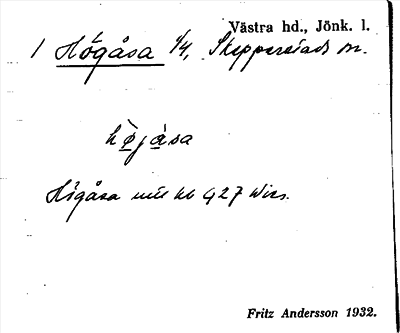 Västra hd., Jönk. l.
1 Högåsa 1/4, Skepperstads sn.
höjåsa
Högåsa
Fritz Andersson 1932.